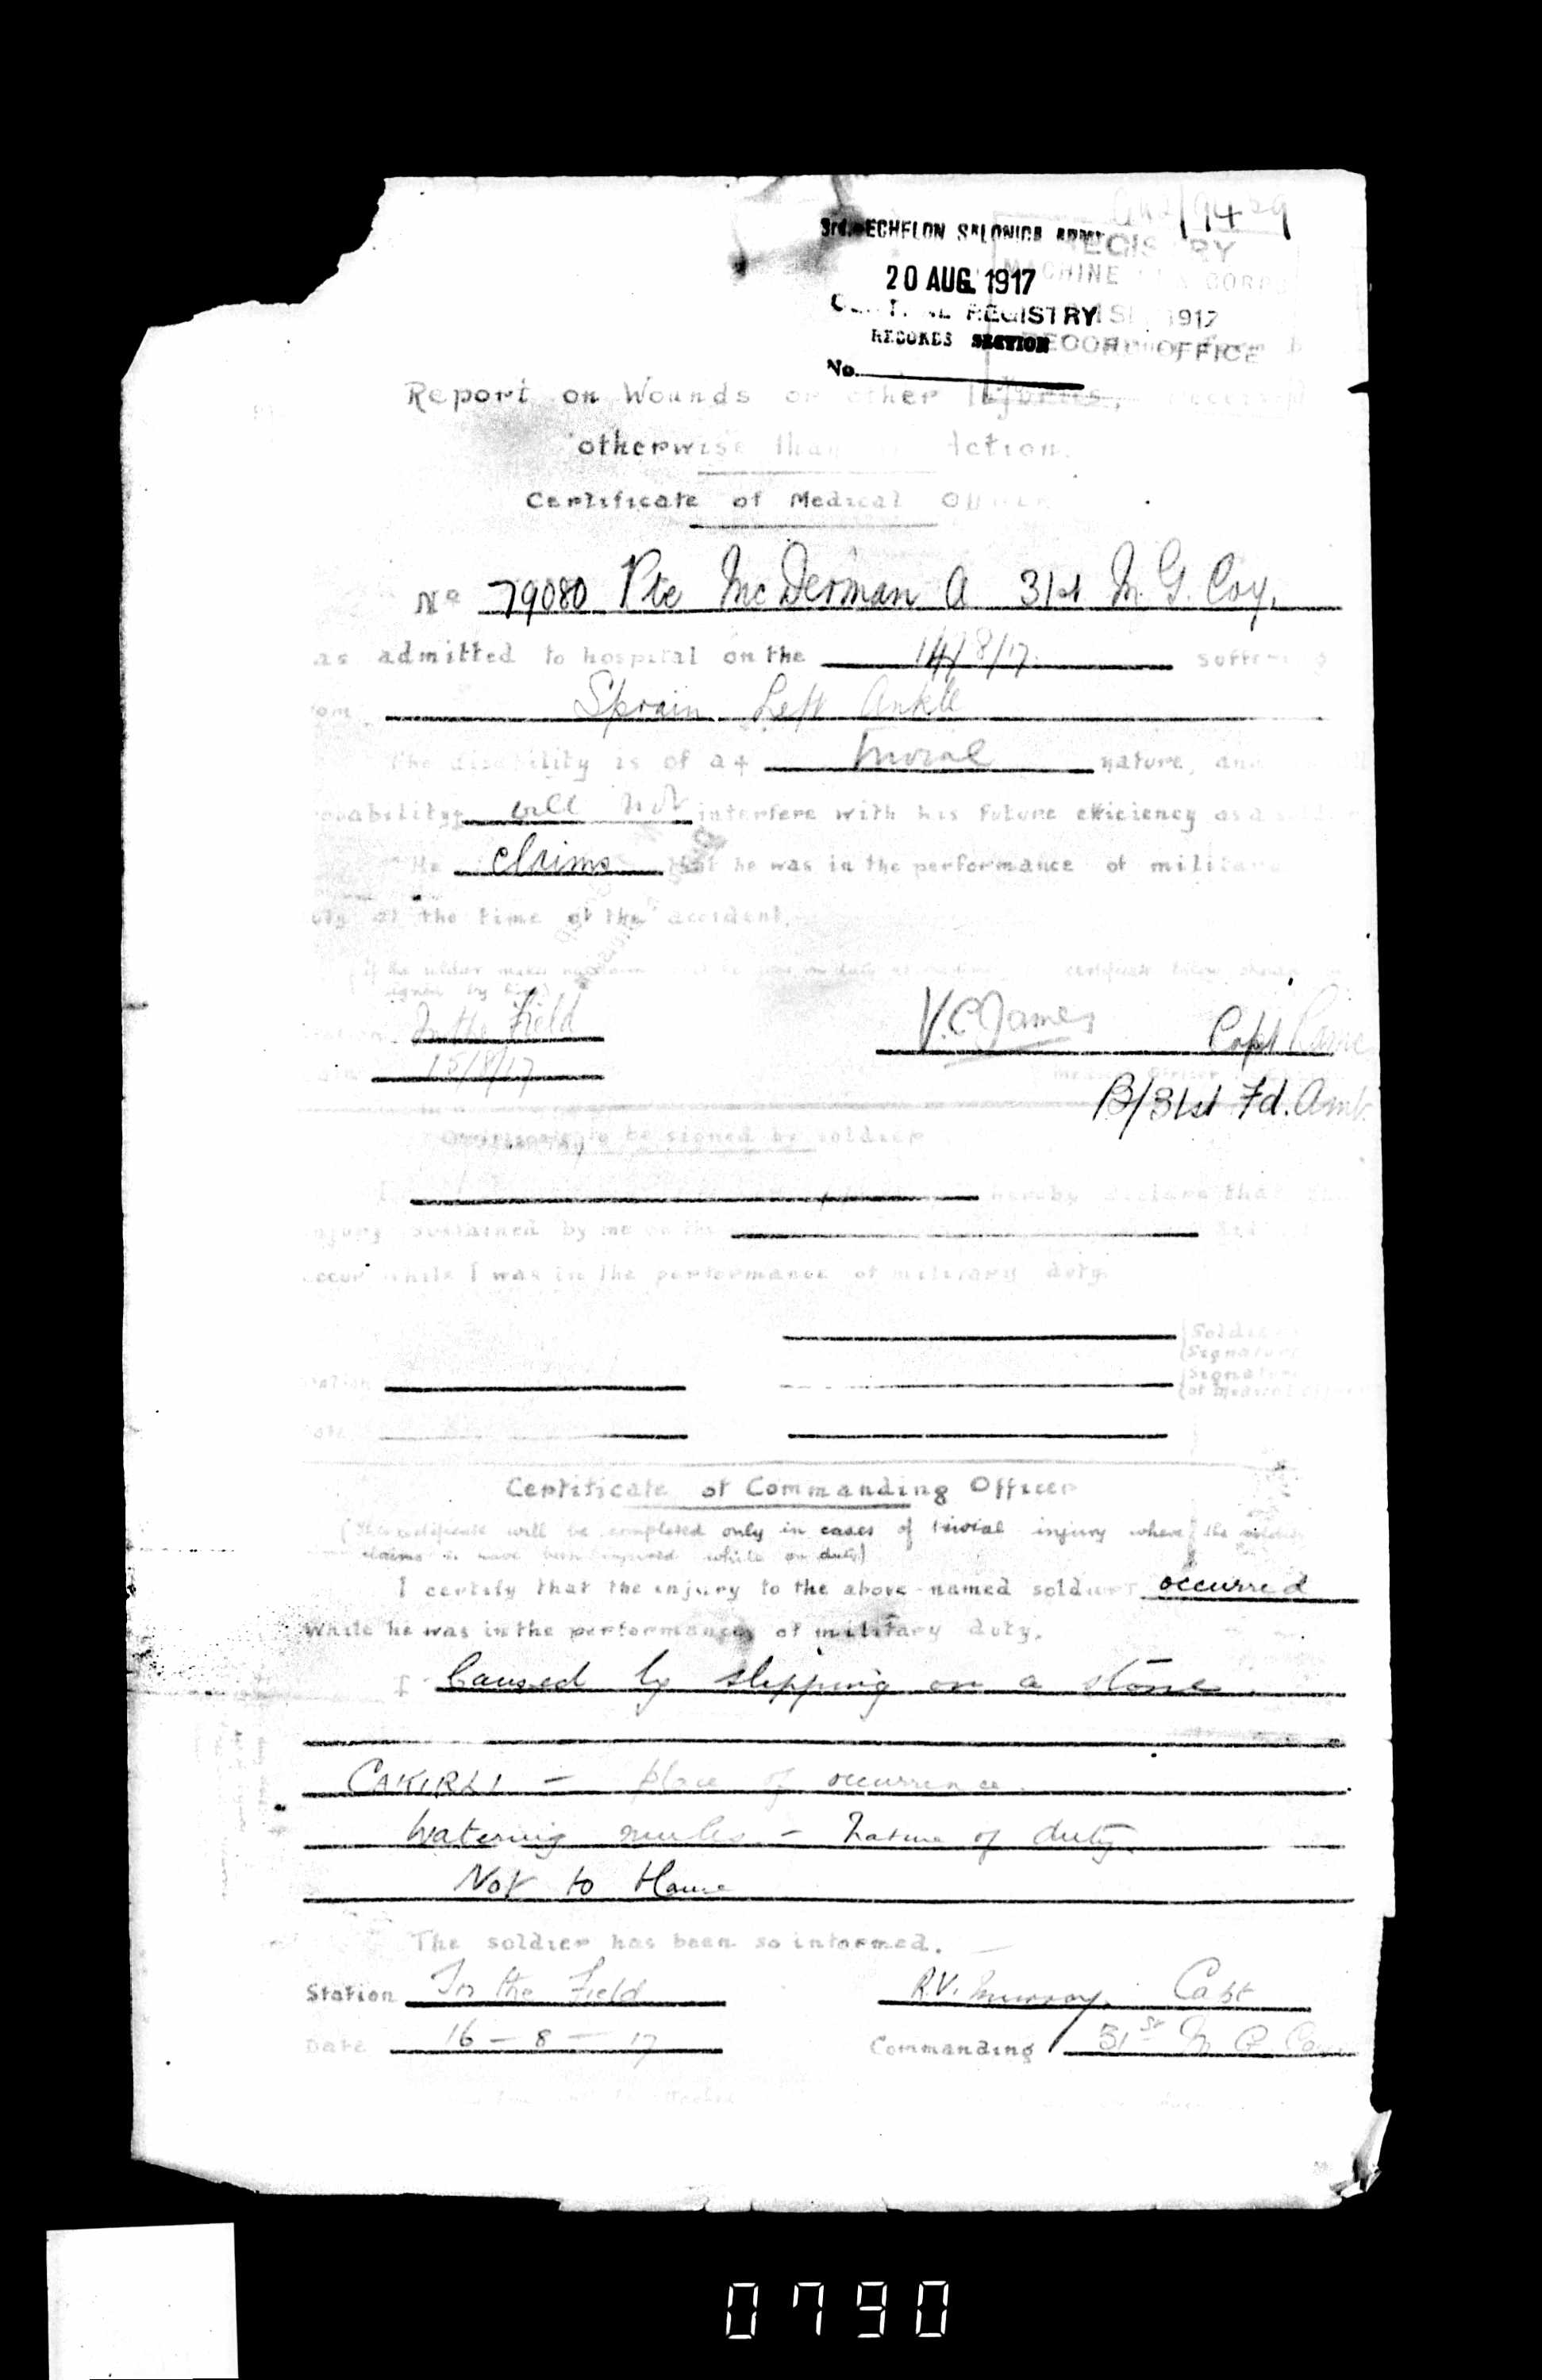 9429
3rd. ECHELON SALONICA ARMY
REGISTRY
MACHINE GUN CORPS
20 AUG. 1917
CENTRAL REGISTRY
1917
RECORDS SECTION
RECORD OFFICE
No.
Report on Wounds or other Injuries, received
otherwise than in Action.
Certificate of Medical Officer
No 79080 Pte McDerman A 31st M.G. Coy.
as admitted to hospital on the 14/8/17. suffering
om Sprain Left Ankle
The disability is of a + trivial nature, and
obability will not interfere with his future efficiency as a soldier
He claims that he was in the performance of military
uty at the time of the accident.
In the Field
V.C. James Capt
15/8/17
B/31st Fd. Amb.
Certificate to be signed by soldier
I hereby declare that the
njury sustained by me on the did
occur while I was in the performance of military duty.
(Soldier
(Signature
ation
(Signature
(of Medical Officer
ate
Certificate of Commanding Officer
(This certificate will be completed only in cases of trivial injury where the soldier
claims to have been injured while on duty)
I certify that the injury to the above-named soldier occurred
While he was in the performance of military duty.
Caused by slipping on a stone.
CAKIRLI - place of occurrence.
Watering mules - Nature of duty.
Not to blame
The soldier has been so informed.
Station In the Field
R.V. Murray, Capt
Date 16 - 8 - 17
Commanding 31st M G Coy
0790